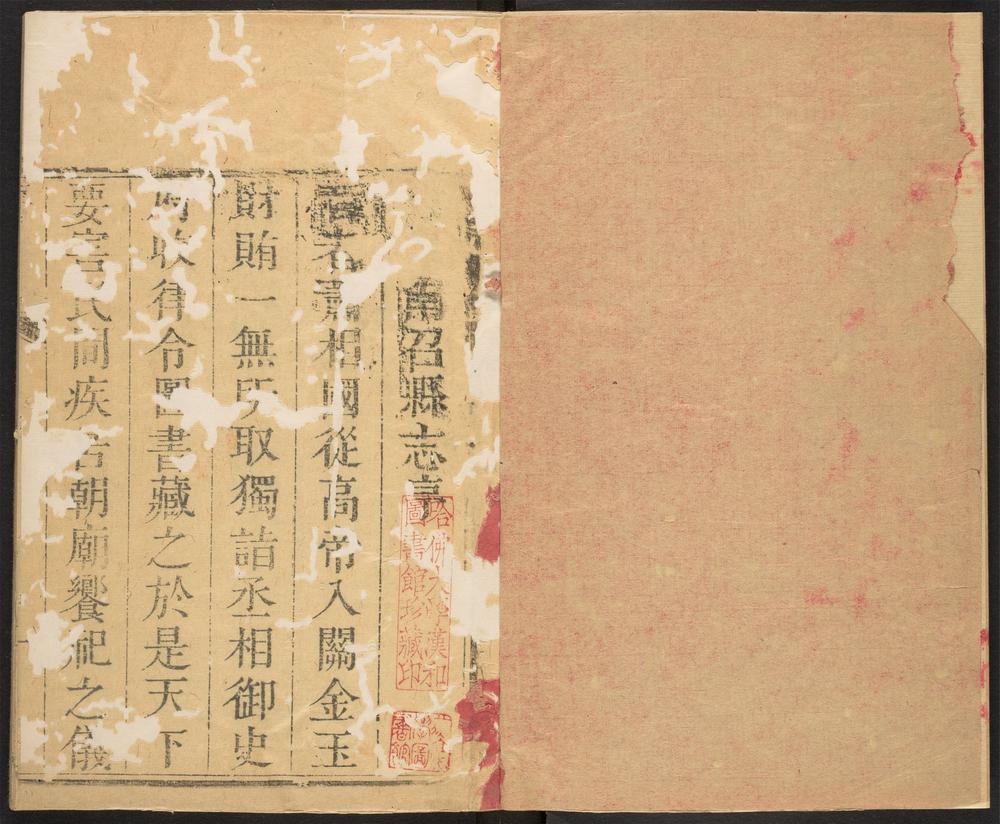 南召縣志序
相國從高帝入關金玉
財賄一無所取獨詣丞相御史
府收律令圖書藏之於是天下
要害民間疾苦朝廟饗祀之儀
哈佛大學漢和
圖書館珍藏印